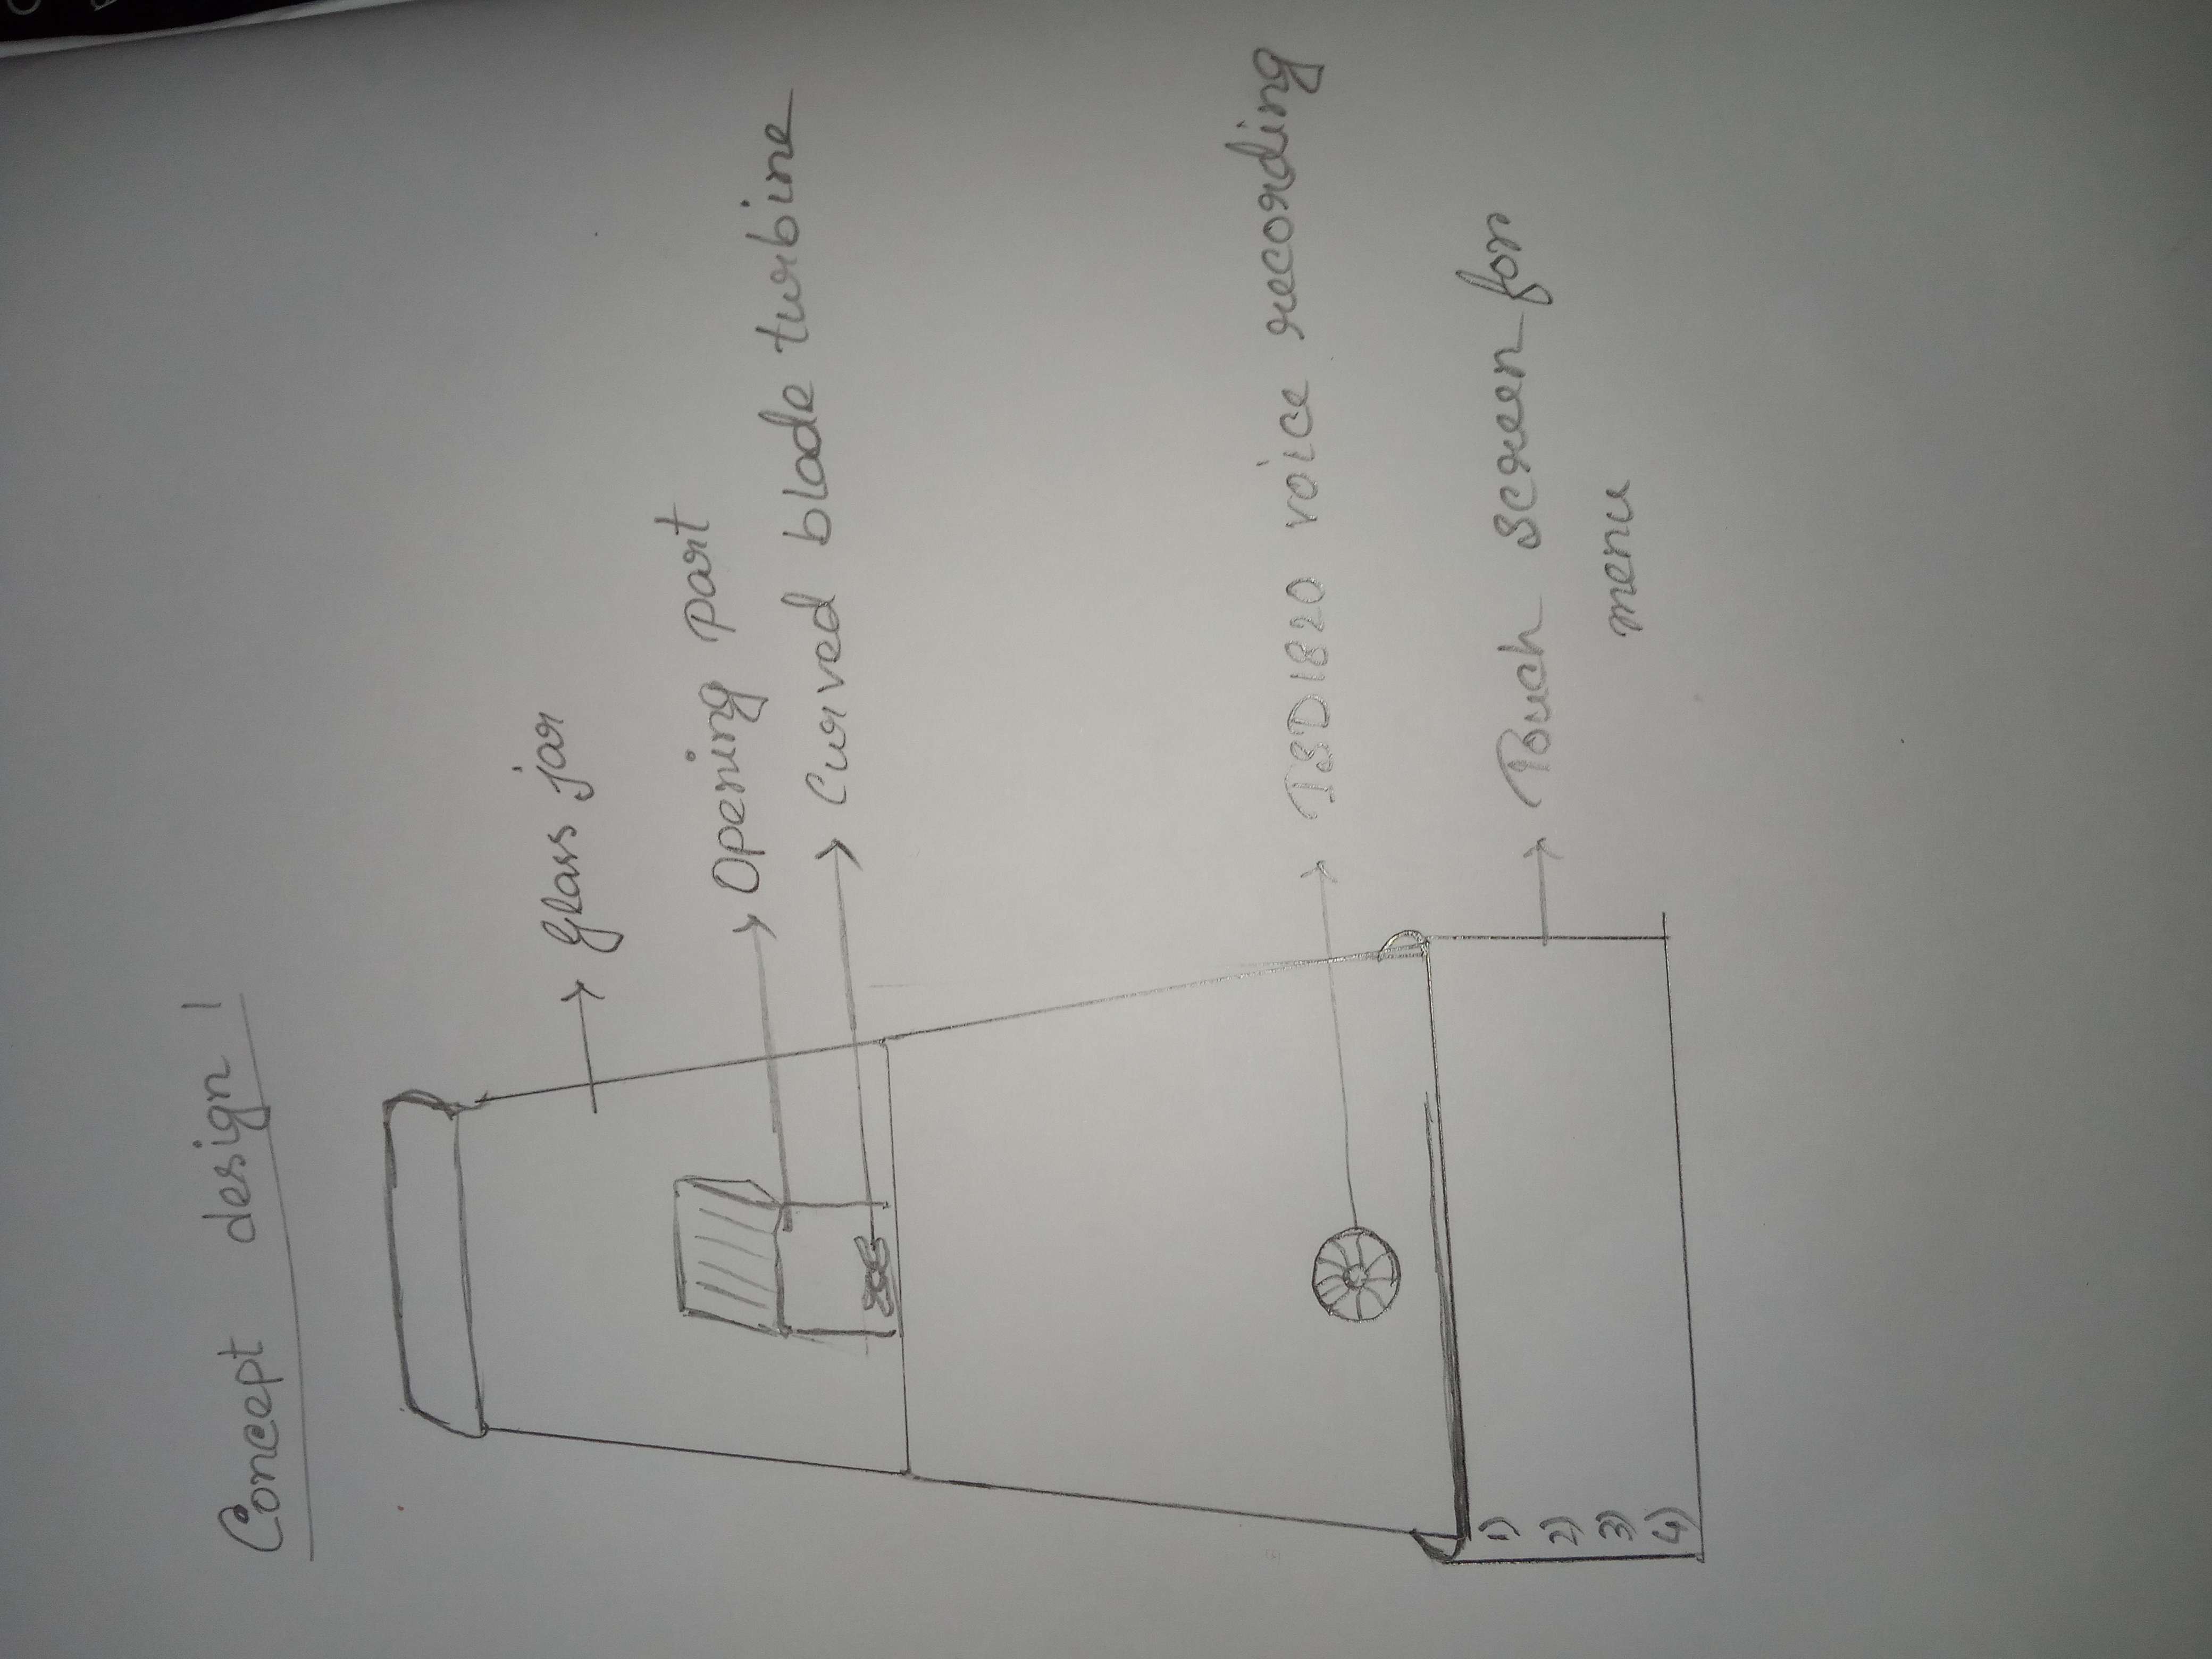 Concept design 1
Glass jar
Opening part
Curved blade turbine
ISD1820 voice recording
Touch screen for
menu
1)
2)
3)
4)